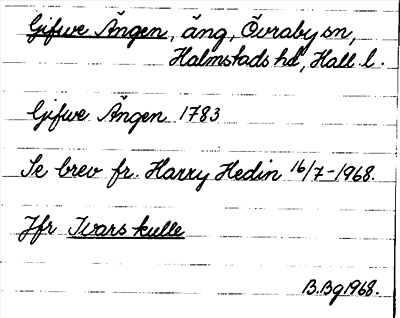 Gifwe Ängen, äng, Övraby sn,
Halmstads hd, Hall l.
Gifwe Ängen 1783
Se brev fr. Harry Hedin 16/7-1968.
Jfr Ivars kulle
B.Bg 1968.